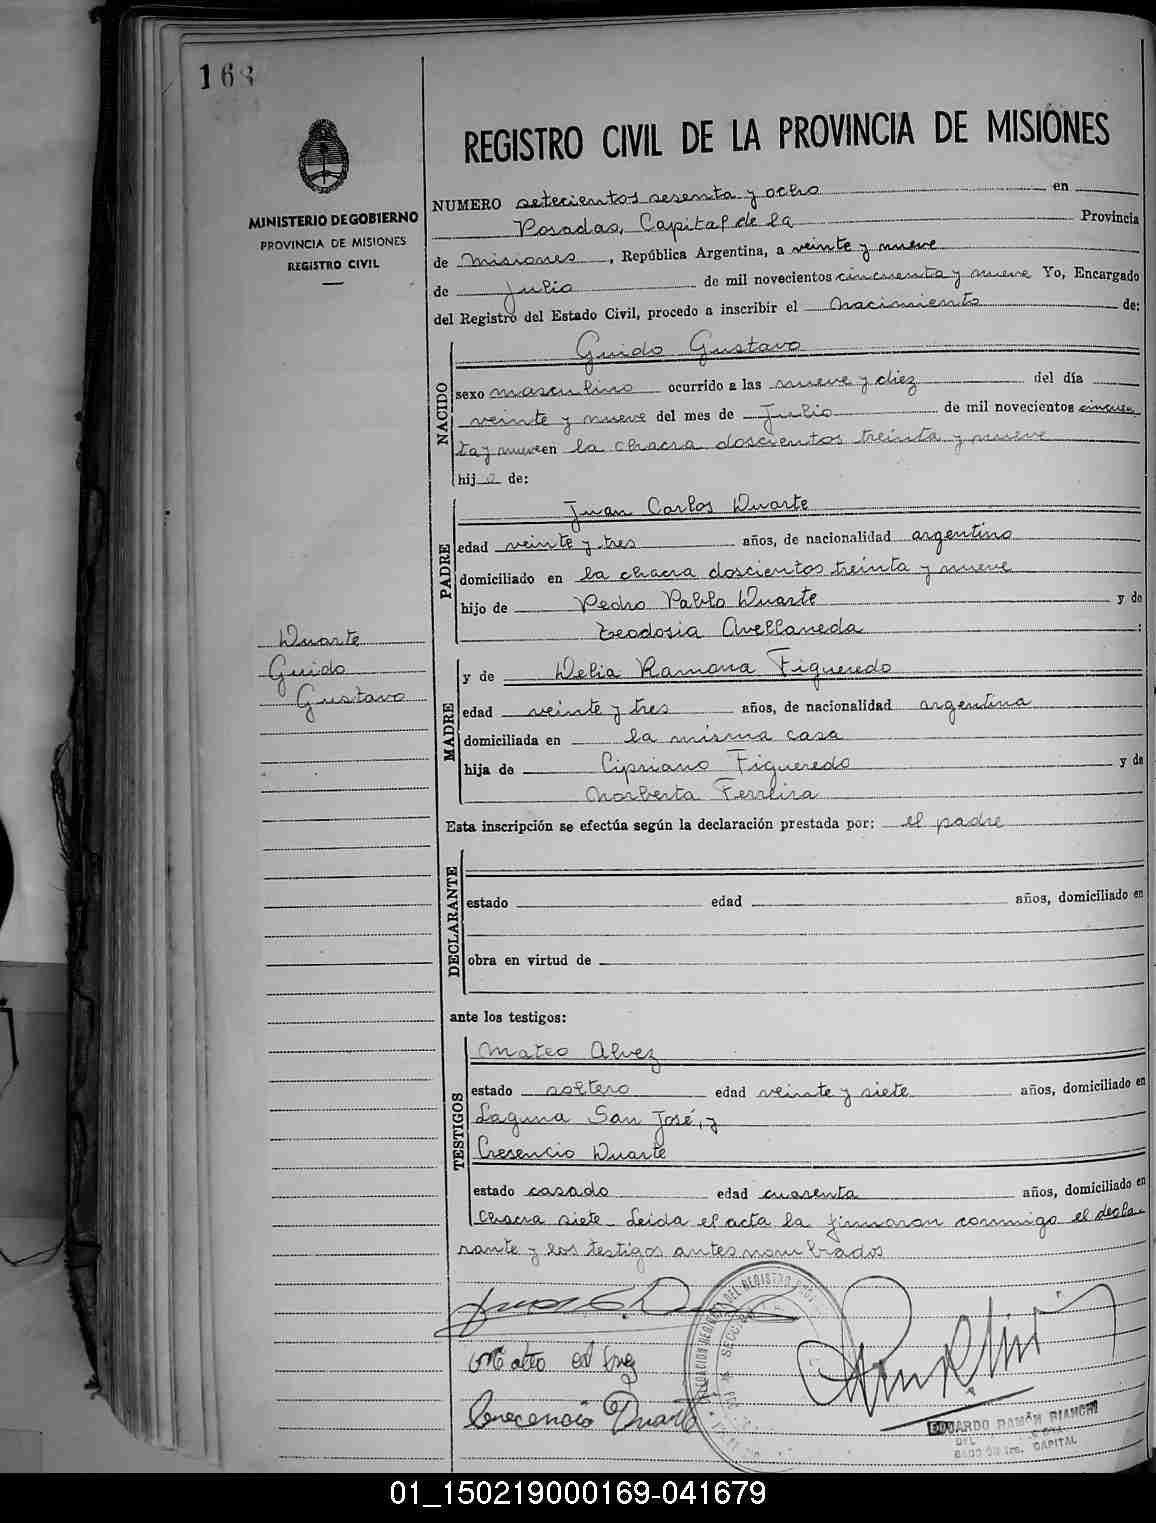 168
REGISTRO CIVIL DE LA PROVINCIA DE MISIONES
MINISTERIO DE GOBIERNO
PROVINCIA DE MISIONES
REGISTRO CIVIL
NUMERO setecientos sesenta y ocho en
Posadas, Capital de la Provincia
de Misiones, República Argentina, a veinte y nueve
de Julio de mil novecientos cincuenta y nueve Yo, Encargado
del Registro del Estado Civil, procedo a inscribir el nacimiento de:
Guido Gustavo
NACIDO
sexo masculino ocurrido a las nueve y diez del día
veinte y nueve del mes de Julio de mil novecientos cincuen
ta y nueve en la chacra doscientos treinta y nueve
hijo de:
Juan Carlos Duarte
PADRE
edad veinte y tres años, de nacionalidad argentino
domiciliado en la chacra doscientos treinta y nueve
hijo de Pedro Pablo Duarte y de
Teodosia Avellaneda :
Duarte
Guido
Gustavo
MADRE
y de Delia Ramona Figueredo
edad veinte y tres años, de nacionalidad argentina
domiciliada en la misma casa
hija de Cipriano Figueredo y de
Norberta Ferreira
Esta inscripción se efectúa según la declaración prestada por: el padre
DECLARANTE
estado edad años, domiciliado en
obra en virtud de
ante los testigos:
TESTIGOS
Mateo Alvez
estado soltero edad veinte y siete años, domiciliado en
Laguna San José, y
Cresencio Duarte
estado casado edad cuarenta años, domiciliado en
Chacra siete. Leida el acta la firmaron conmigo el decla-
rante y los testigos antes nombrados
Mateo Alvez
Crecencio Duarte
EDUARDO RAMÓN BIANCHI
CAPITAL
01_150219000169-041679